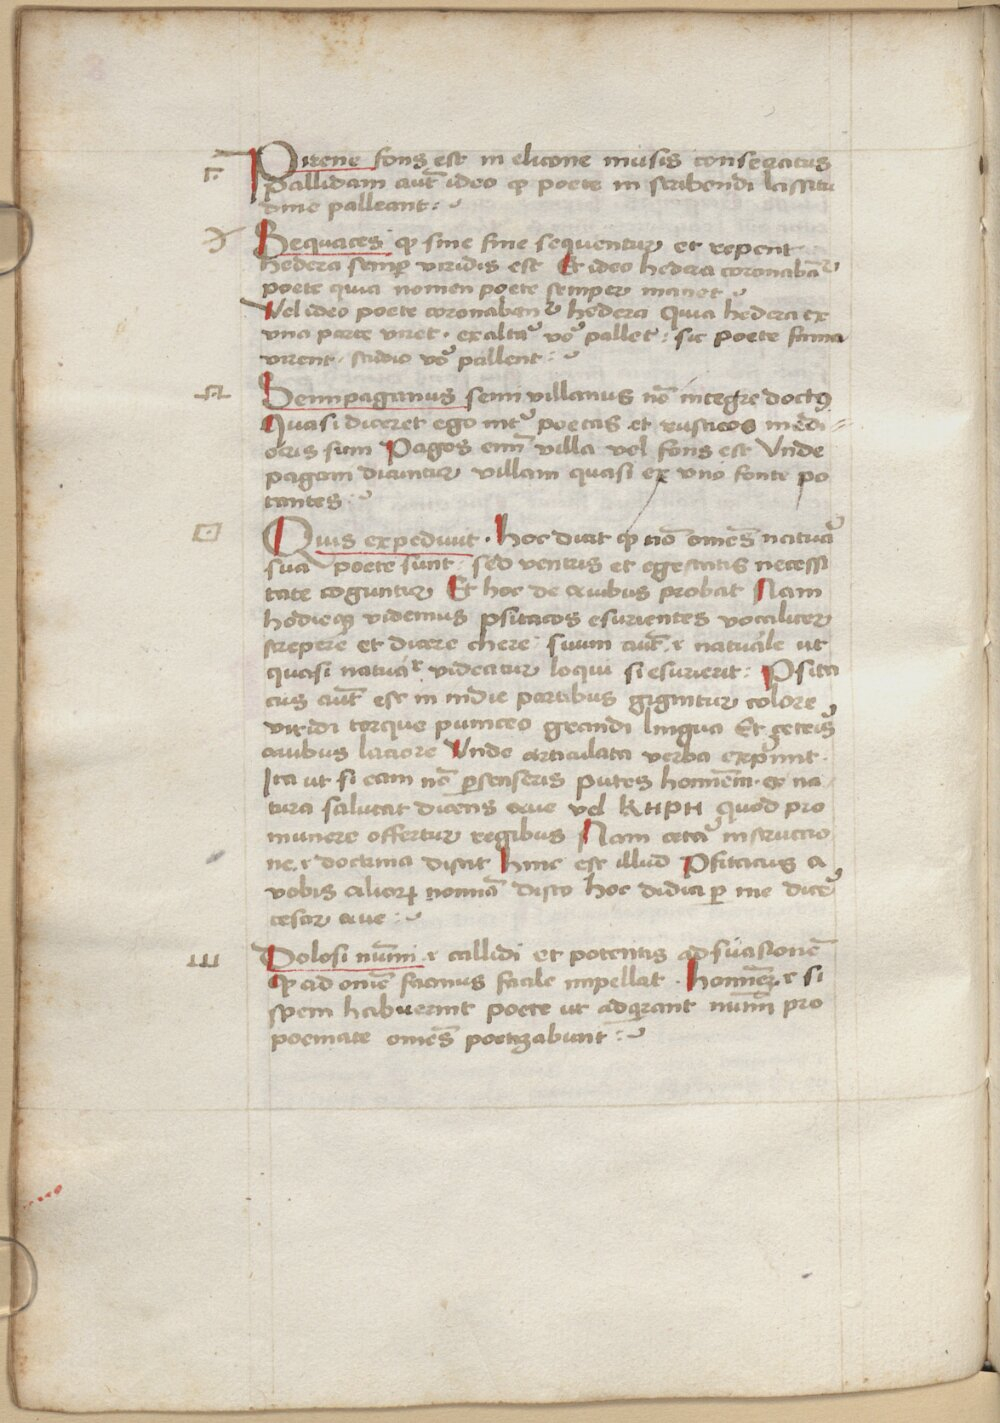 Pirene fons est in elicone musis consecratus
pallidam aut̄ ideo qꝫ poete in scribendi lassitu
dine palleant :
Sequaces qꝫ sine fine sequentur et repent
hedera semꝑ viridis est Et ideo hedera coronabāt̾
poete quia nomen poete semper manet
Vel ideo poete coronaban̄t̾ hedera Quia hedera ex
vna parte viret · ex alt̾a vō pallet : sic poete fama
virent · studio vō pallent :
Semipaganus semi villanus nō integre doctꝰ
Quasi diceret ego int̾ poetas et rusticos medi
ocris sum Pagos enī villa vel fons est Vnde
pagani dicuntur villani quasi ex vno fonte po
tantes :
Quis expediuit · hoc dicit qꝫ nō omēs natura
sua poete sunt · sed ventris et egestatis necessi
tate coguntur Et hoc de auibus probat Nam
hodieqꝫ videmus psitacos esurientes vocaliter
strepere et dicere chere · suum aut̄ ⁊ naturale ut
quasi natural̾r videatur loqui si esurierit : Psita
cus aut̄ est in indie partibus gignitur colore
viridi torque puniceo grandi lingua Et ceteris
auibus laciore Vnde articulata verba exp̾mit ·
Ita ut si eam nō ꝑsenseris putes hominēm · ex na
tura salutat dicens aue vel KHPH quod pro
munere offertur regibus Nam cet̾a instructio
ne ⁊ doctrina discit hinc est illud Psitacus a
vobis alioꝝ nomīa disco hoc didici ꝑ me dice̾
cesar aue :
Dolosi nūmi ⁊ callidi et potentis ad suasionē
qꝫ ad omē facinus facile impellat · hominēꝫ ⁊ si
spem habuerint poete ut adq̾rant nūm̄ pro
poemate omēs poetizabunt :